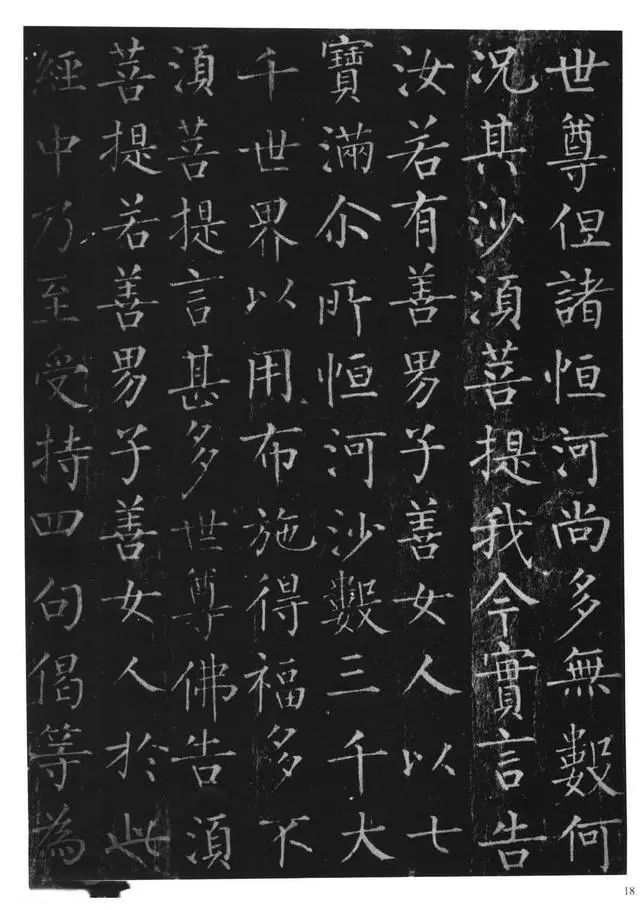 世尊但諸恒河尚多無數何
況其沙須菩提我今實言告
汝若有善男子善女人以七
寶滿尒所恒河沙數三千大
千世界以用布施得福多不
須菩提言甚多世尊佛告須
菩提若善男子善女人於此
經中乃至受持四句偈等為
18